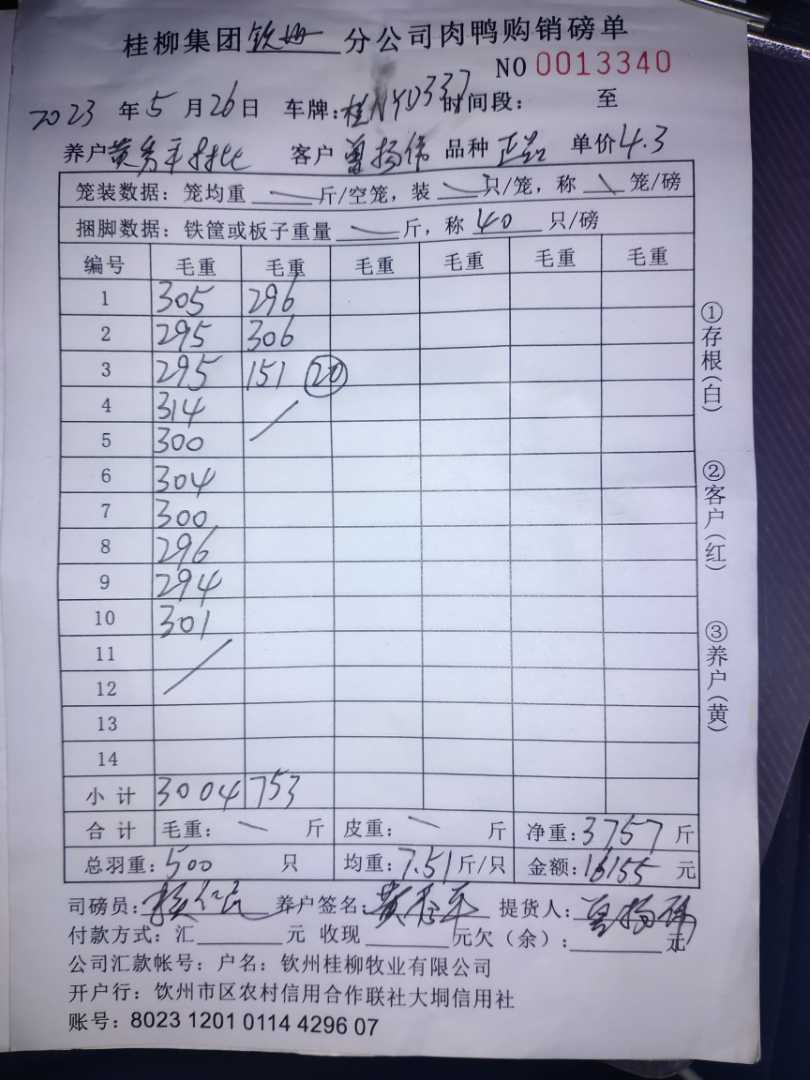 桂柳集团钦州分公司肉鸭购销磅单
NO 0013340
2023 年 5 月 26 日 车牌：桂NY0337 时间段： 至
养户 黄秀平 客户 曾扬伟 品种 正品 单价 4.3
笼装数据：笼均重 斤/空笼，装 只/笼，称 笼/磅
捆脚数据：铁筐或板子重量 斤，称 40 只/磅
编号 毛重 毛重 毛重 毛重 毛重 毛重
1 305 296
2 295 306
3 295 151 20
4 314
5 300
6 304
7 300
8 296
9 294
10 301
11
12
13
14
小计 3004 753
合计 毛重： 斤 皮重： 斤 净重：3757 斤
总羽重：500 只 均重：7.51 斤/只 金额：16155 元
司磅员： 养户签名：黄秀平 提货人：曾扬伟
付款方式：汇 元 收现 元欠（余）： 元
公司汇款帐号：户名：钦州桂柳牧业有限公司
开户行：钦州市区农村信用合作联社大垌信用社
账号：8023 1201 0114 4296 07
①存根（白）
②客户（红）
③养户（黄）